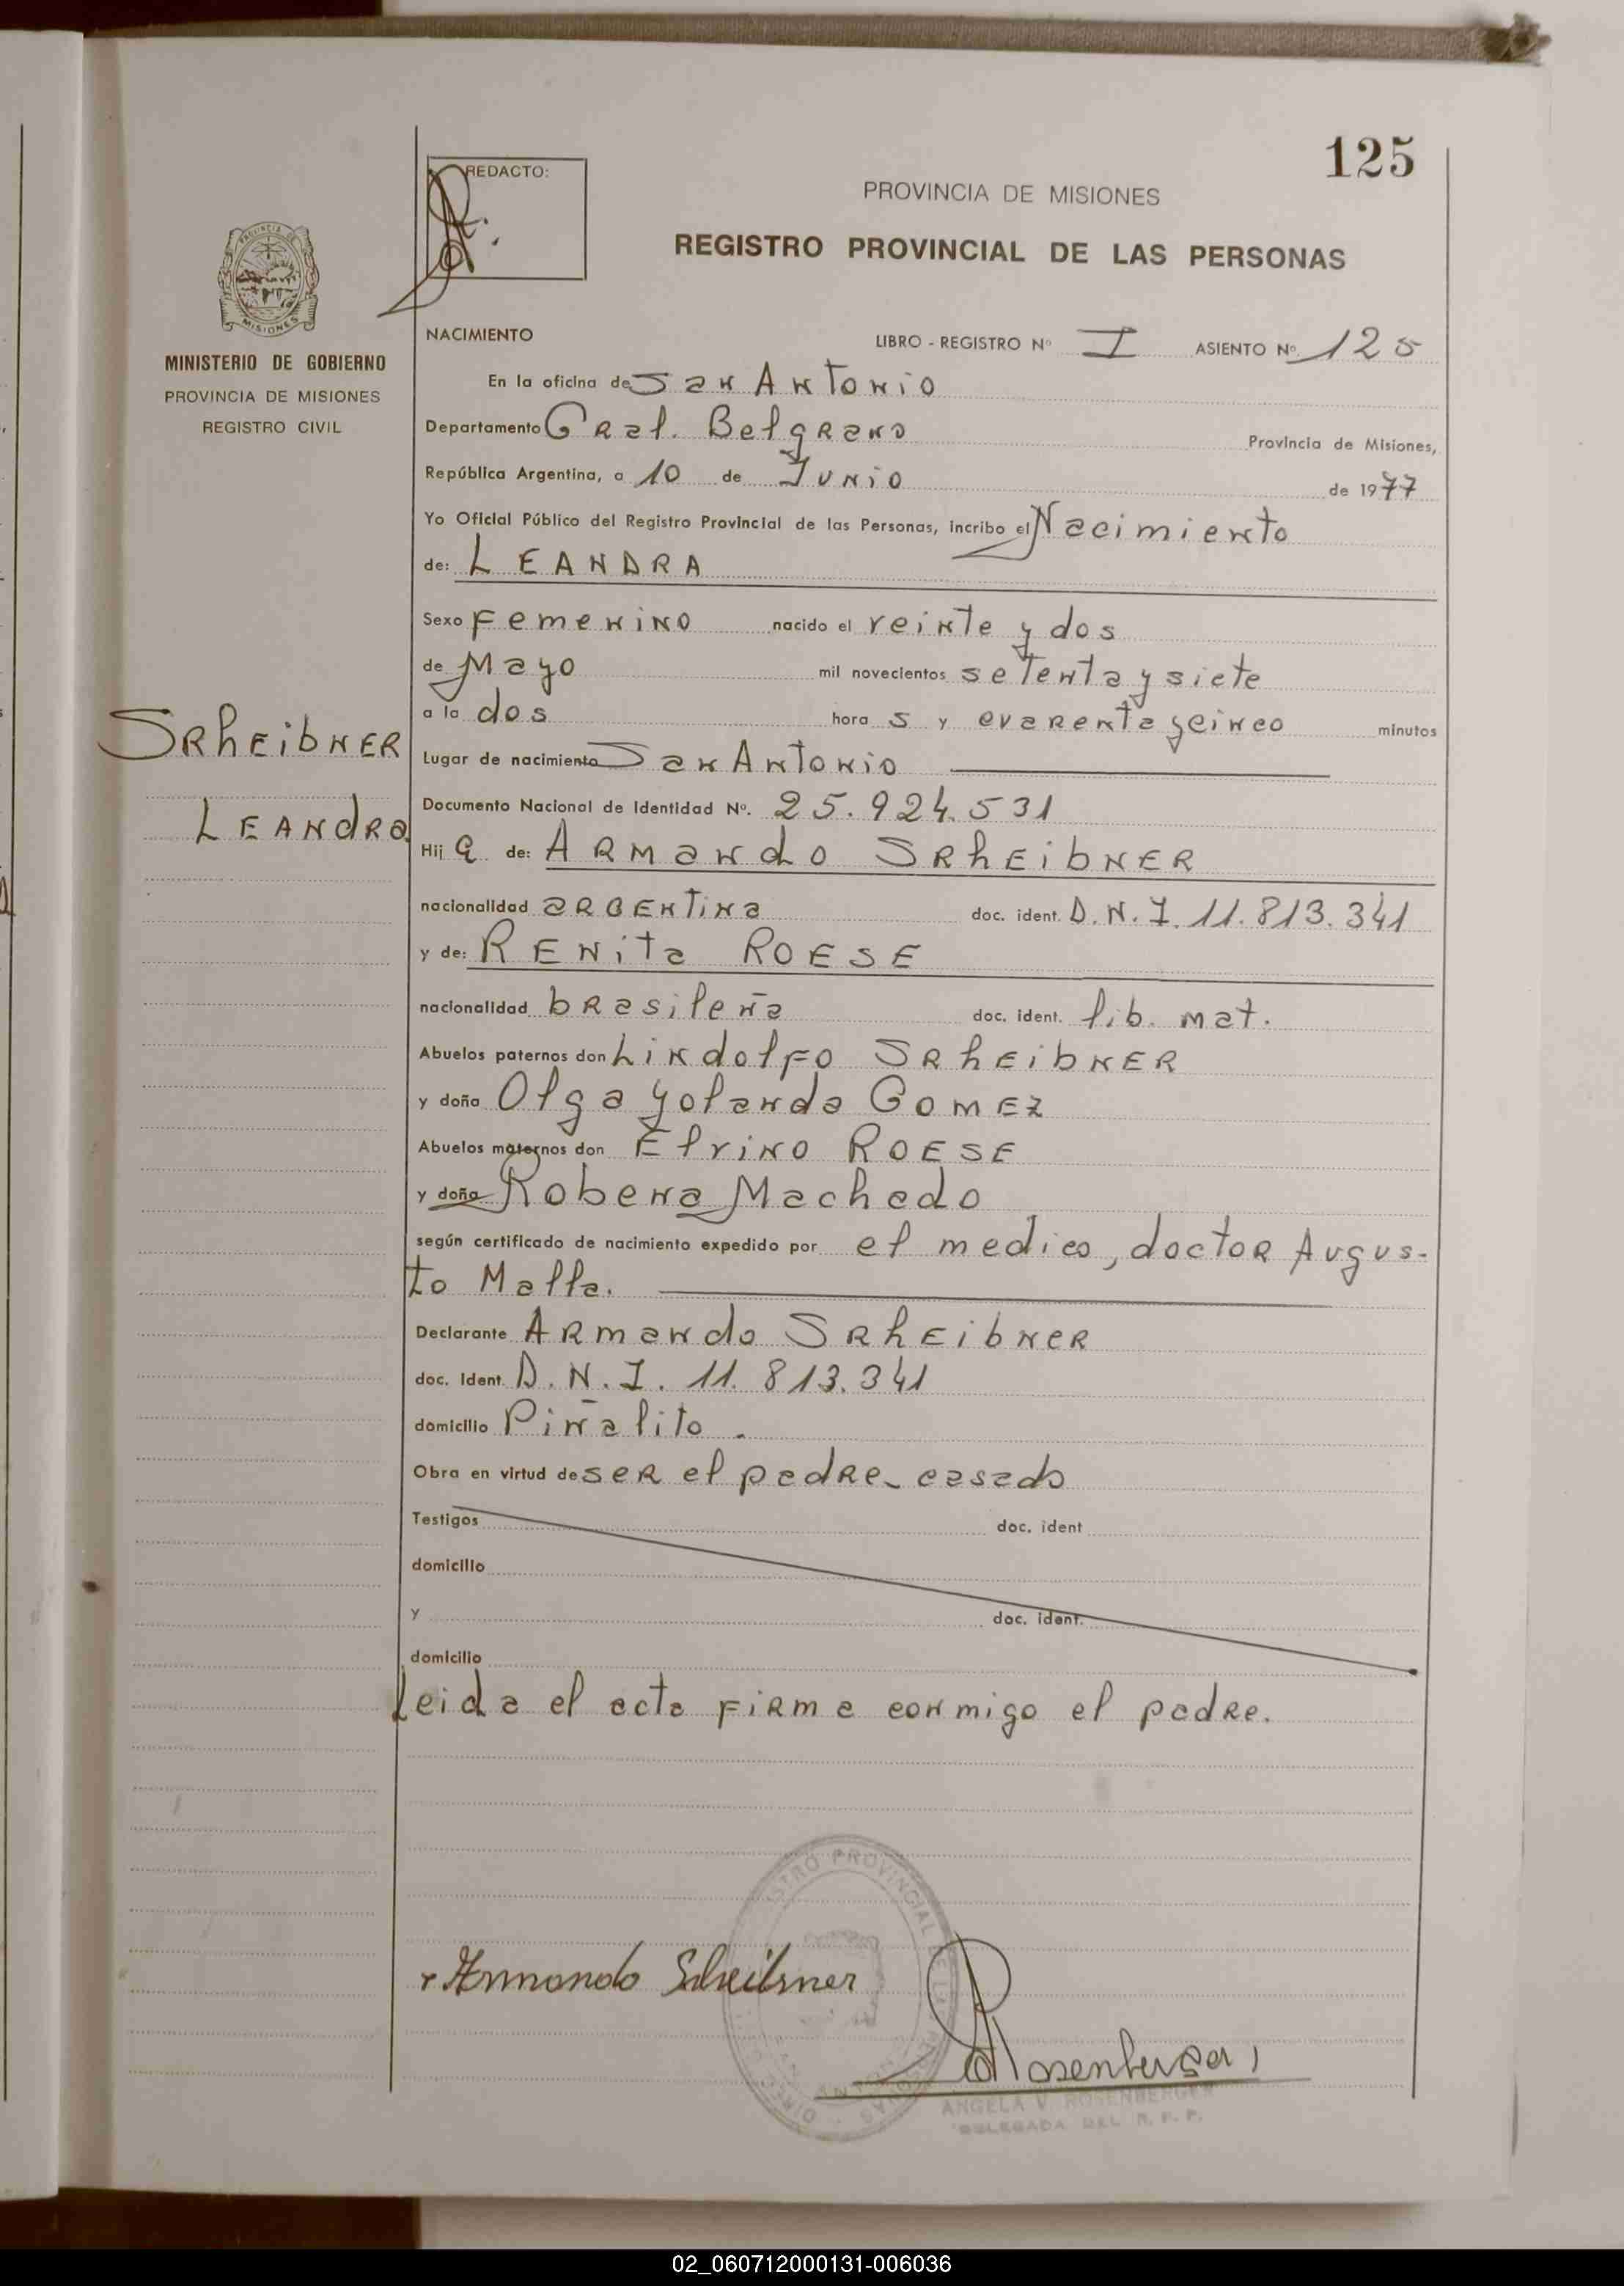 125
REDACTO:
PROVINCIA DE MISIONES
REGISTRO PROVINCIAL DE LAS PERSONAS
MISIONES
MINISTERIO DE GOBIERNO
PROVINCIA DE MISIONES
REGISTRO CIVIL
NACIMIENTO LIBRO - REGISTRO Nº I ASIENTO Nº 125
En la oficina de San Antonio
Departamento Gral. Belgrano Provincia de Misiones,
República Argentina, a 10 de Junio de 1977
Yo Oficial Público del Registro Provincial de las Personas, incribo el Nacimiento
de: LEANDRA
Sexo Femenino nacido el veinte y dos
de Mayo mil novecientos setenta y siete
a la dos hora s y cuarenta y cinco minutos
SRHEIBNER
LEANDRA
Lugar de nacimiento San Antonio
Documento Nacional de Identidad Nº. 25.924.531
Hij a de: Armando SRHEIBNER
nacionalidad argentina doc. ident. D.N.I. 11.813.341
y de: RENita ROESE
nacionalidad brasileña doc. ident. lib. mat.
Abuelos paternos don Lindolfo SRHEIBNER
y doña Olga Yolanda GOMEZ
Abuelos maternos don Elvino ROESE
y doña Robena Machado
según certificado de nacimiento expedido por el medico, doctor Augus-
to Malla.
Declarante Armando SRHEIBNER
doc. Ident. D.N.I. 11.813.341
domicilio Piñalito.
Obra en virtud de ser el padre casado
Testigos doc. ident
domicilio
y doc. ident.
domicilio
Leida el acta firma conmigo el padre.
Armando Scheibner
Rosenberger
ANGELA V. ROSENBERGER
DELEGADA DEL R. P. P.
02_060712000131-006036